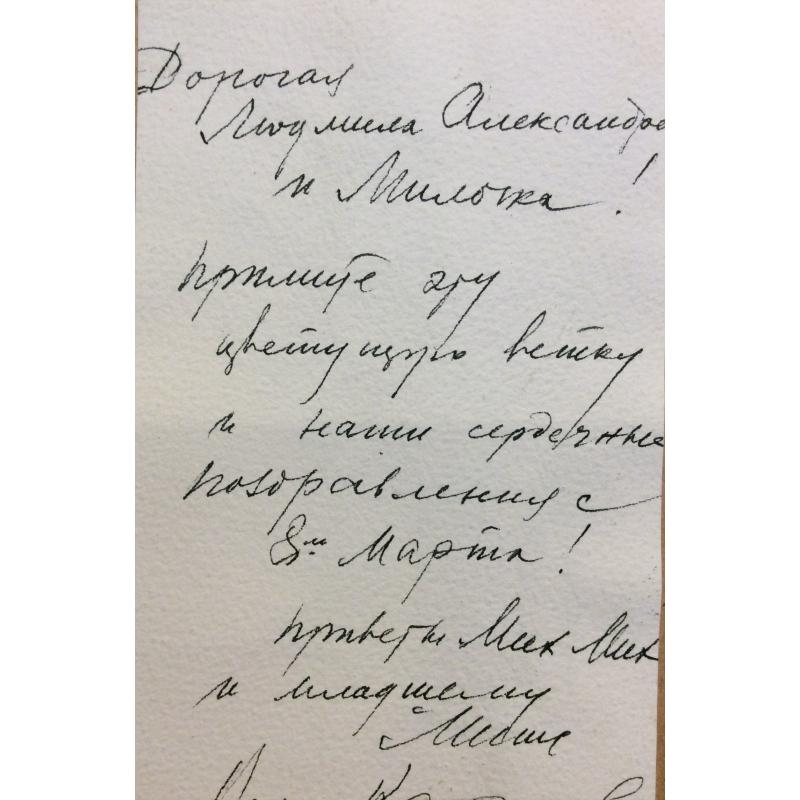 Дорогая
Людмила Александров
и Милочка!
примите эту
цветущую ветку
и наши сердечные
поздравления с
8м Марта!
приветы Мих Мих
и младшему
Мише